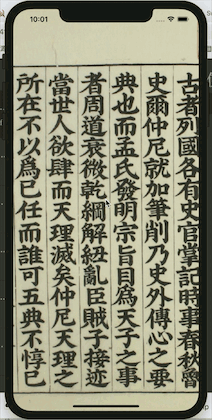 10:01
古者列國各有史官掌記時事春秋魯
史爾仲尼就加筆削乃史外傳心之要
典也而孟氏發明宗旨目爲天子之事
者周道衰微乾綱解紐亂臣賊子接迹
當世人欲肆而天理滅矣仲尼天理之
所在不以爲己任而誰可五典不惇己